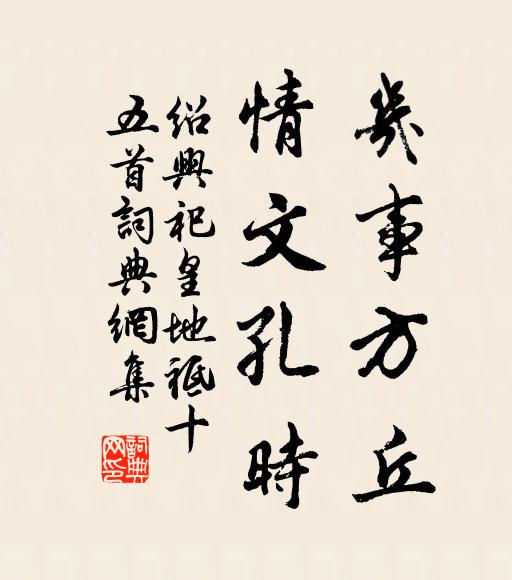 幾事方丘
情文孔時
紹興祀皇地祇十
五首詞典網集
詞典
网印